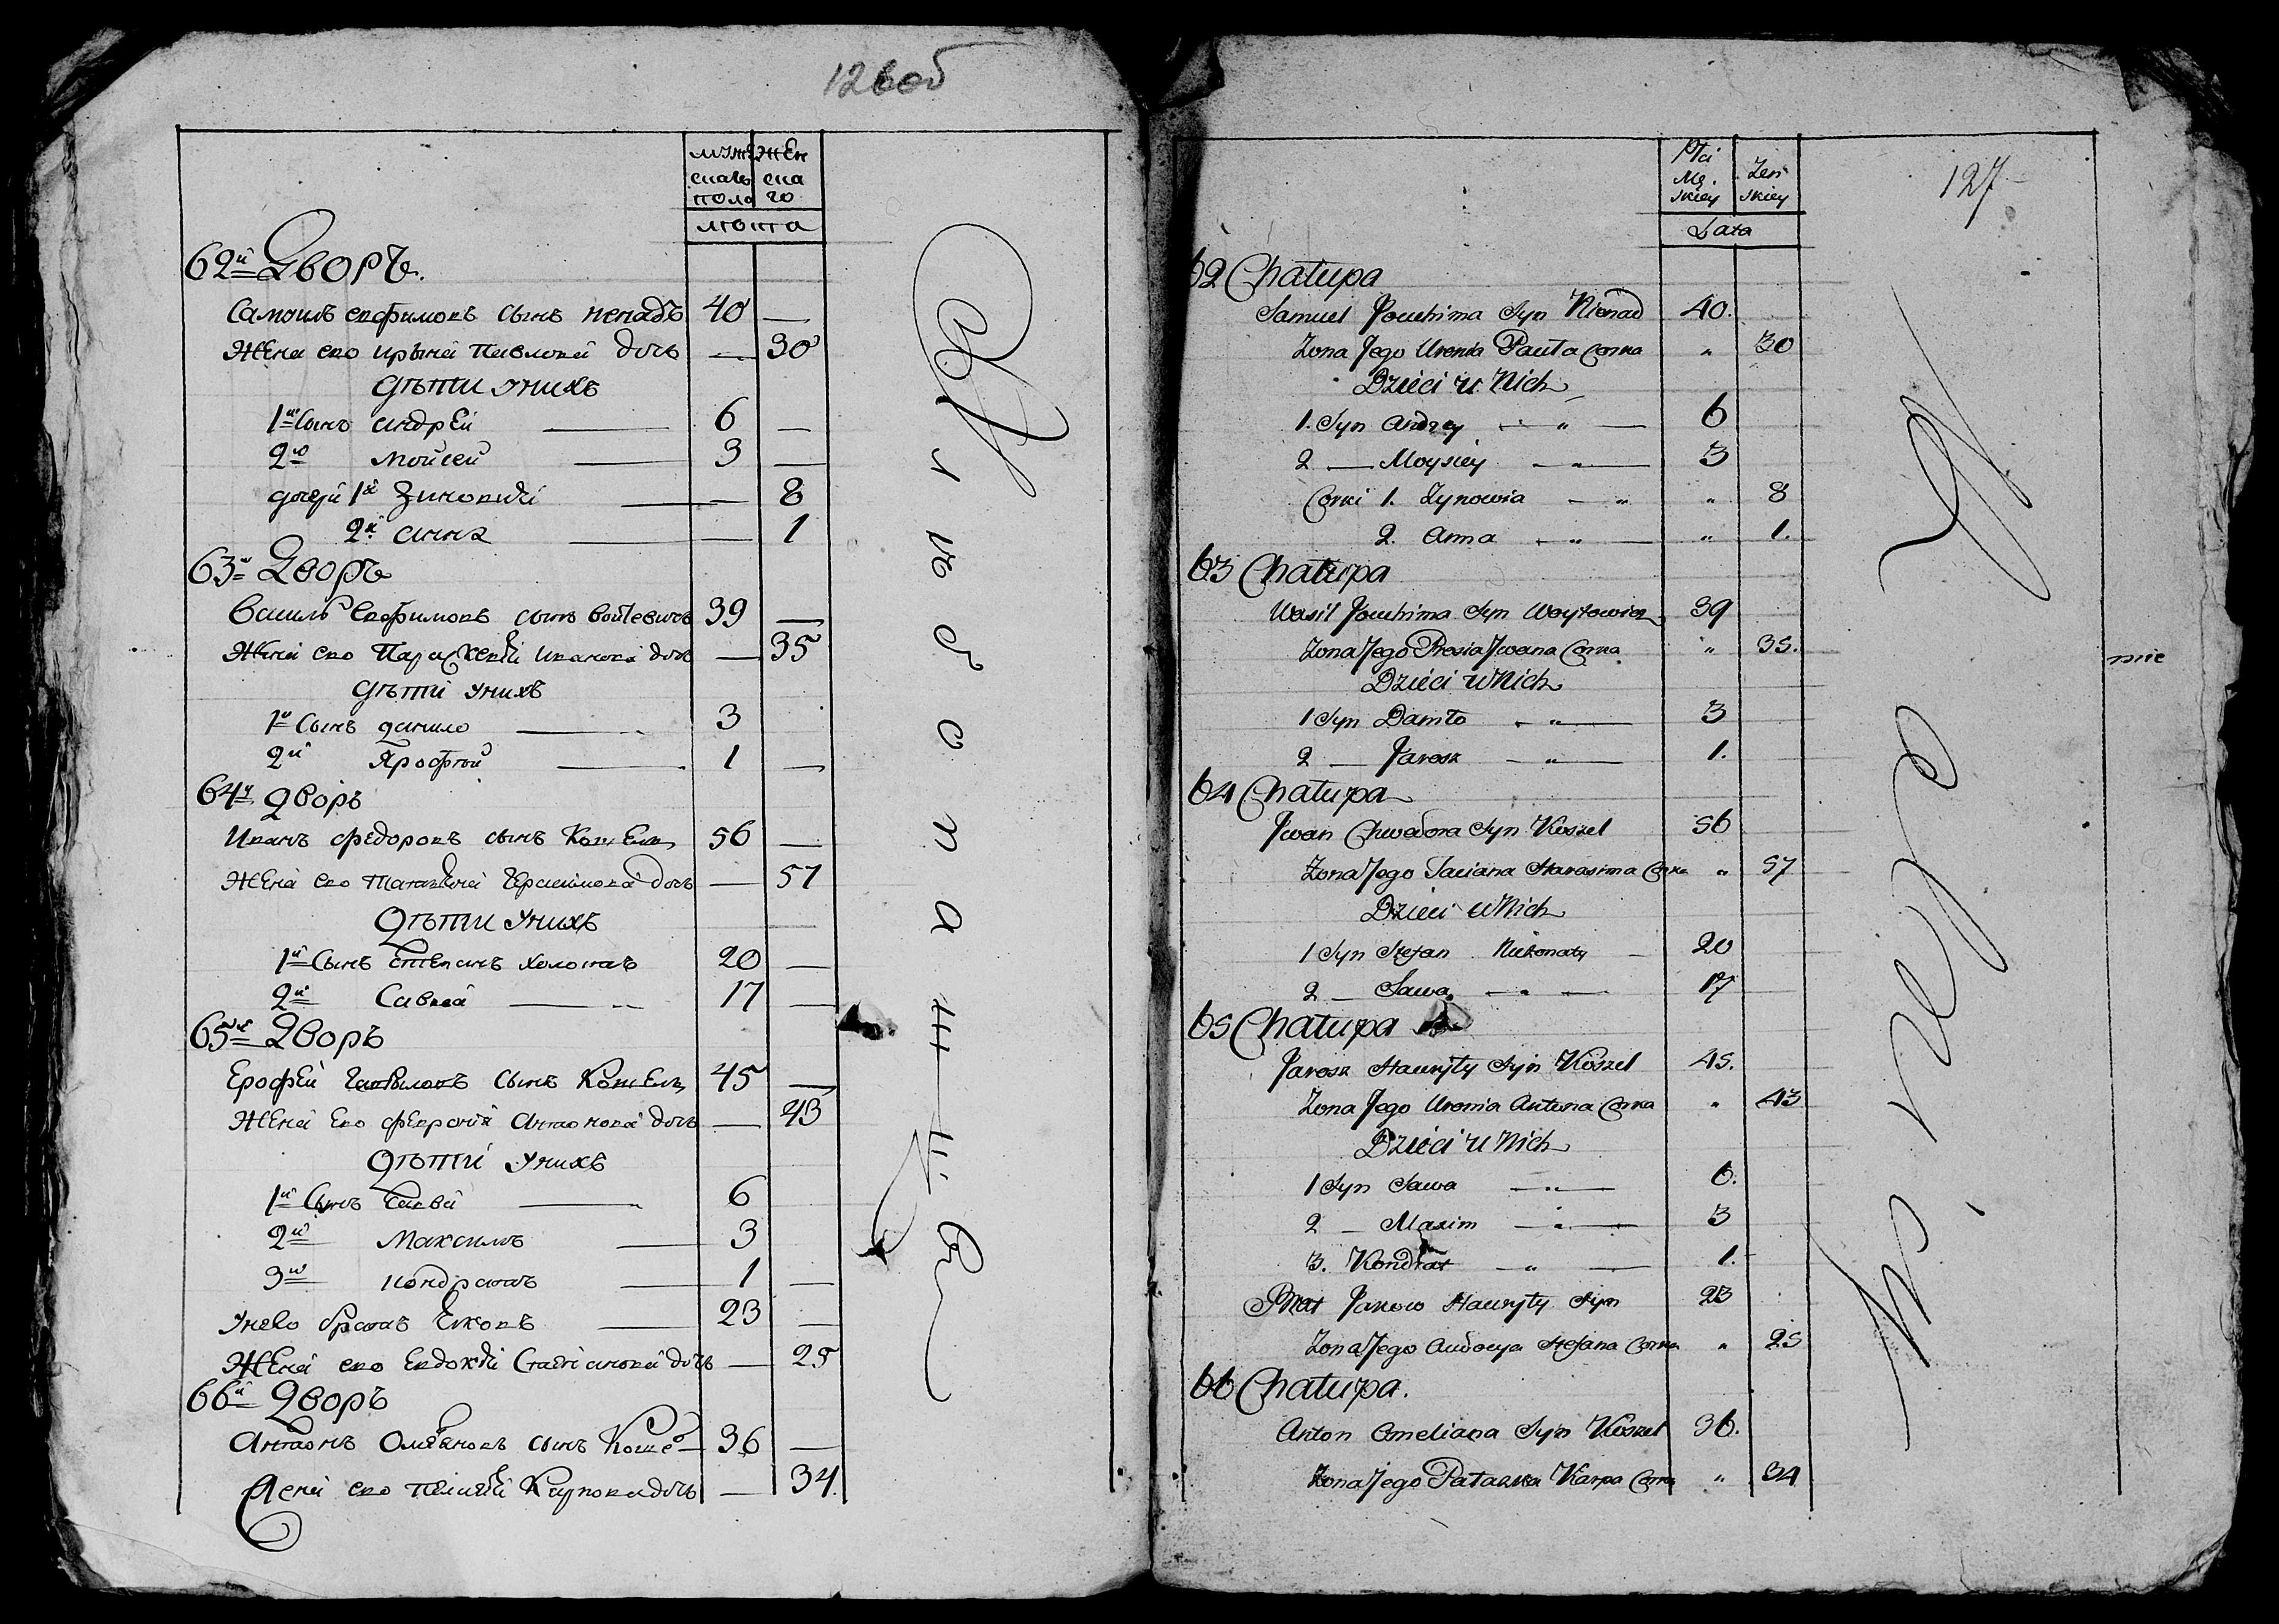 126об
мужескаго пола
женскаго
лѣта
62й Дворъ.
Самоилъ Ефимовъ сынъ Ненадъ 40 —
Жена его Ирына Павлова дочь — 30
Дѣти у нихъ
1й Сынъ Андрей — 6 —
2й Мойсей — 3 —
дочери 1я Зиновия — — 8
2я Анна — — 1
63й Дворъ
Василь Ефимовъ сынъ Войтевичъ 39 —
Жена его Параскевия Иванова дочь — 35
Дѣти у нихъ
1й Сынъ Данило — 3
2й Ярофтей — 1 —
64й Дворъ
Иванъ Федоровъ сынъ Кошель 56 —
Жена его Татьяна Герасимова дочь — 57
Дѣти у нихъ
1й Сынъ Степанъ холостъ 20 —
2й Савва — 17 —
65й Дворъ
Ерофей Гавриловъ сынъ Кошель 45 —
Жена его Феврония Антонова дочь — 43
Дѣти у нихъ
1й Сынъ Савва — 6
2й Максимъ — 3
3й Кондратъ — 1 —
У нево братъ Яковъ — 23 —
Жена его Евдокия Степанова дочь — 25
66й Дворъ
Антонъ Омельяновъ сынъ Коше— 36 —
Жена его Пелагия Карпова дочь — 34.
127
Płci Męskiey
Żeńskiey
Lata
62 Chałupa
Samuel Jouchima Syn Nienad 40.
Żona Jego Urenia Pawła Corka " 30
Dzieci u Nich
1. Syn Andrzy — " — 6
2 — Moysiey — " — 3
Corki 1. Zynowia — " " 8
2. Anna — " — " 1.
63 Chałupa
Wasil Jouchima Syn Woytowicz 39
Żona Jego Presia Jwana Corka " 35.
Dzieci u Nich
1 Syn Daniło — " — 3
2 — Jarosz — " — 1.
64 Chałupa
Jwan Chwedora Syn Koszel 56
Żona Jego Taciana Harasima Corka " 57
Dzieci u Nich
1 Syn Stefan Niżonaty — 20
2 — Sawa — " — 17
65 Chałupa
Jarosz Hawryły Syn Koszel 45.
Żona Jego Urenia Antona Corka " 43
Dzieci u Nich
1 Syn Sawa — " — 6.
2 — Maxim — " — 3
3. Kondrat — " — 1.
Brat Jakow Hawryły Syn 23
Żona Jego Audocya Stefana Corka " 25
66 Chałupa.
Anton Omeliana Syn Koszel 36.
Żona Jego Pałaszka Karpa Corka " 34